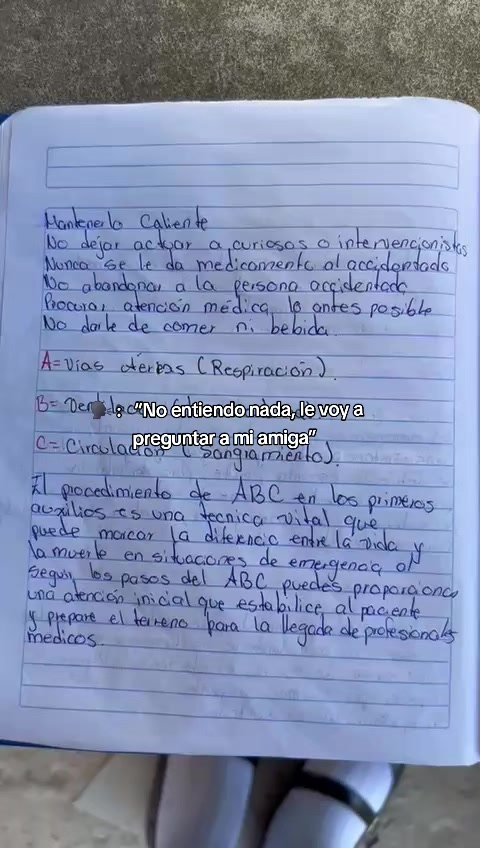 Mantenerlo Caliente
No dejar actuar a curiosos o intervencionistas
Nunca se le da medicamento al accidentado
No abandonar a la persona accidentada
Procurar atención médica lo antes posible
No darle de comer ni bebida.
A= Vias aéreas (Respiración).
B=
: "No entiendo nada, le voy a
preguntar a mi amiga"
C= Circulación (Sangramiento).
El procedimiento de ABC en los primeros
auxilios es una tecnica vital que
puede marcar la diferencia entre la vida y
la muerte en situaciones de emergencia al
seguir los pasos del ABC puedes proporciona
una atención inicial que estabilice al paciente
y prepare el terreno para la llegada de profesionales
medicos.